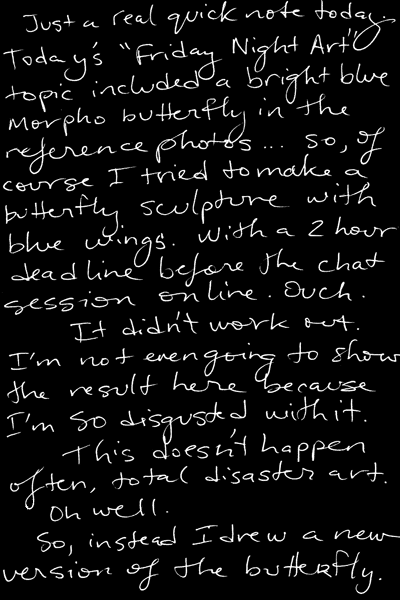 Just a real quick note today
Today's "Friday Night Art"
topic included a bright blue
morpho butterfly in the
reference photos... so, of
course I tried to make a
butterfly sculpture with
blue wings. With a 2 hour
deadline before the chat
session online. Ouch.
It didn't work out.
I'm not even going to show
the result here because
I'm so disgusted with it.
This doesn't happen
often, total disaster art.
Oh well.
So, instead I drew a new
version of the butterfly.